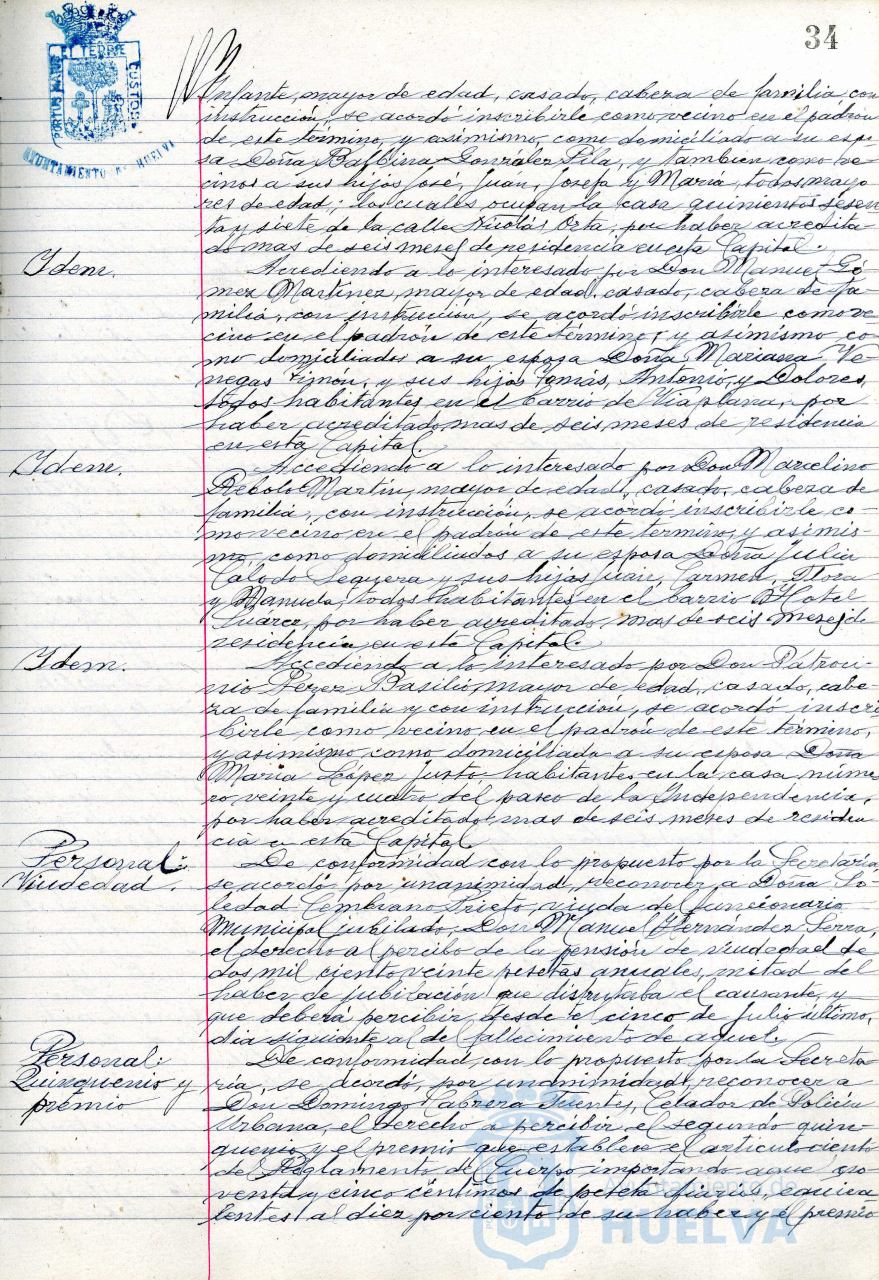 34
PORTUS MARIS ET TERRE CUSTODIA
AYUNTAMIENTO DE HUELVA
Infante, mayor de edad, casado, cabeza de familia, con
instrucción, se acordó inscribirle como vecino en el padrón
de este término, y asimismo, como domiciliado a su espo-
sa Doña Balbina González Pila, y tambien como ve-
cinos a sus hijos José, Juan, Josefa y María, todos mayo-
res de edad; los cuales ocupan la casa quinientos sesen
ta y siete de la calle Nicolás Orta, por haber acredita-
do mas de seis meses de residencia en esta Capital.
Idem.
Accediendo a lo interesado por Don Manuel Gó-
mez Martínez, mayor de edad, casado, cabeza de fa-
milia, con instrucción, se acordó inscribirle como ve-
cino en el padrón de este término, y asimismo co-
mo domiciliados a su esposa Doña Mariana Ve-
negas Limón, y sus hijos Tomás, Antonio, y Dolores,
todos habitantes en el barrio de Viaplana, por
haber acreditado mas de seis meses de residencia
en esta Capital.
Idem.
Accediendo a lo interesado por Don Marcelino
Rebolo Martín, mayor de edad, casado, cabeza de
familia, con instrucción, se acordó inscribirle co-
mo vecino en el padrón de este termino, y asimis-
mo, como domiciliados a su esposa Doña Julia
Seguera y sus hijos Juan, Carmen, Flora
y Manuela, todos habitantes en el barrio Hotel
Suarez, por haber acreditado, mas de seis meses de
residencia en esta Capital.
Idem.
Accediendo a lo interesado por Don Patroci-
nio Perez Basilio, mayor de edad, casado, cabe-
za de familia y con instrucción, se acordó inscri
birle como vecino en el padrón de este término,
y asimismo como domiciliada a su esposa Doña
María López Justo habitantes en la casa núme
ro veinte y cuatro del paseo de la Independencia,
por haber acreditado mas de seis meses de residen
cia en esta Capital.
Personal:
Viudedad.
De conformidad con lo propuesto por la Secretaría,
se acordó por unanimidad, reconocer a Doña So-
ledad Cembrano Prieto, viuda del funcionario
Municipal jubilado, Don Manuel Hernández Serra,
el derecho al percibo de la pensión de viudedad de
dos mil ciento veinte pesetas anuales, mitad del
haber de jubilación que disfrutaba el causante, y
que deberá percibir desde el cinco de Julio último,
dia siguiente al de fallecimiento de aquel.
Personal:
Quinquenio y
premio
De conformidad, con lo propuesto por la Secreta
ría, se acordó, por unanimidad, reconocer a
Don Domingo Cabrera Fuentes, Celador de Policía
Urbana, el derecho a percibir el segundo quin-
quenio y el premio que establece el articulo ciento
del Reglamento del Cuerpo importando aquel no-
venta y cinco céntimos de peseta diarios, equiva
lentes al diez por ciento de su haber y el premio
Ayuntamiento de
HUELVA